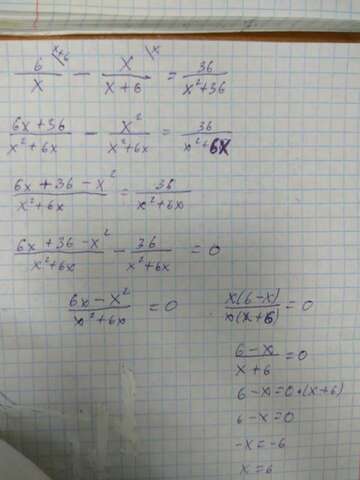 6/x^(x+6) - x/(x+6)^(x) = 36/(x²+36)
(6x+36)/(x²+6x) - x²/(x²+6x) = 36/(x²+6x)
(6x+36-x²)/(x²+6x) = 36/(x²+6x)
(6x+36-x²)/(x²+6x) - 36/(x²+6x) = 0
(6x-x²)/(x²+6x) = 0
x(6-x)/x(x+6) = 0
(6-x)/(x+6) = 0
6-x=0·(x+6)
6-x=0
-x=-6
x=6